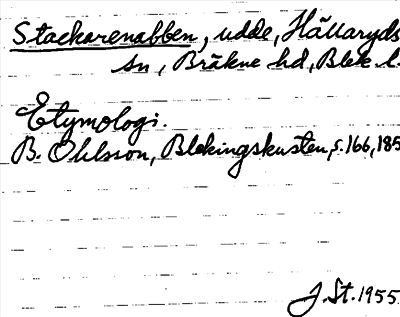 Stackarenabben, udde, Hällaryds
sn, Bräkne hd, Blek l.
Etymologi.
B. Ohlsson, Blekingskusten, s. 166, 185
J. St. 1955